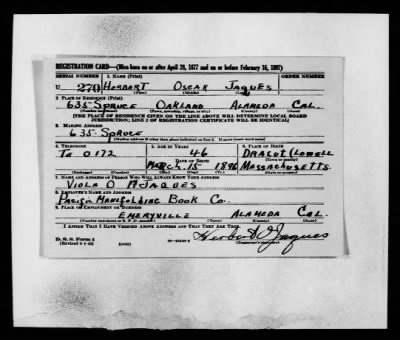 REGISTRATION CARD—(Men born on or after April 28, 1877 and on or before February 16, 1897)
SERIAL NUMBER 1. NAME (Print) ORDER NUMBER
U 270 HERBERT OSCAR JAQUES
(First) (Middle) (Last)
2. PLACE OF RESIDENCE (Print)
635 SPRUCE OAKLAND ALAMEDA CAL.
(Number and street) (Town, township, village, or city) (County) (State)
[THE PLACE OF RESIDENCE GIVEN ON THE LINE ABOVE WILL DETERMINE LOCAL BOARD
JURISDICTION; LINE 2 OF REGISTRATION CERTIFICATE WILL BE IDENTICAL]
3. MAILING ADDRESS
635 SPRUCE
(Mailing address if other than place indicated on line 2. If same insert word same)
4. TELEPHONE 5. AGE IN YEARS 6. PLACE OF BIRTH
TE 0172 46 DRACUT (LOWELL
DATE OF BIRTH
MARCH 15 1896 MASSACHUSETTS
(Mo.) (Day) (Yr.) (State or country)
7. NAME AND ADDRESS OF PERSON WHO WILL ALWAYS KNOW YOUR ADDRESS
VIOLA O JAQUES
8. EMPLOYER'S NAME AND ADDRESS
PACIFIC MANIFOLDING BOOK CO.
9. PLACE OF EMPLOYMENT OR BUSINESS
EMERYVILLE ALAMEDA CAL.
(Number and street or R. F. D. number) (Town) (County) (State)
I AFFIRM THAT I HAVE VERIFIED ABOVE ANSWERS AND THAT THEY ARE TRUE.
D. S. S. Form 1
(Revised 4-1-42) (over)
Herbert O Jaques
(Registrant's signature)